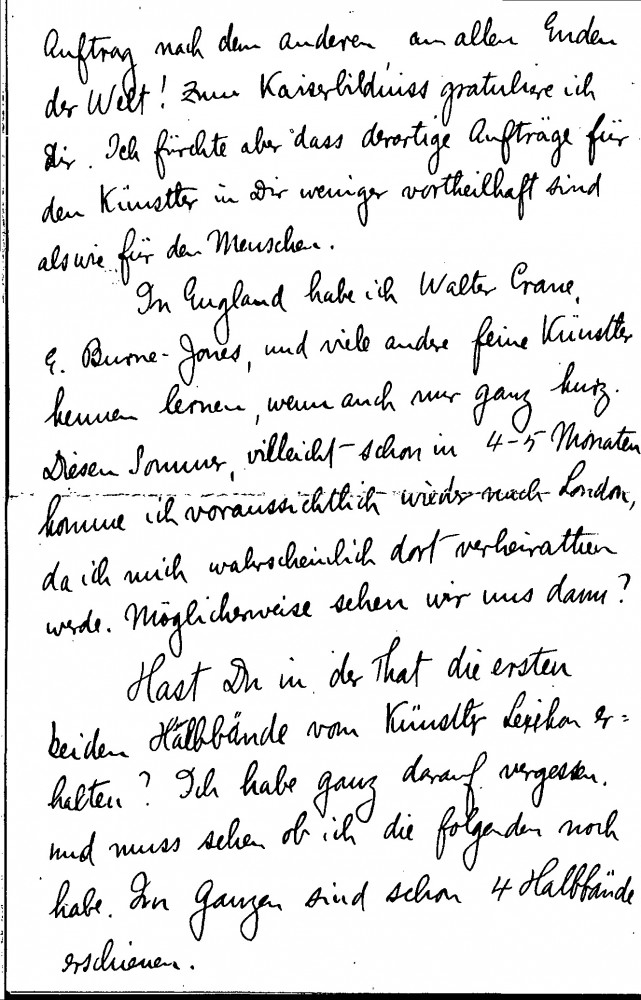 Auftrag nach dem anderen an allen Enden
der Welt! Zum Kaiserbildniss gratuliere ich
Dir. Ich fürchte aber dass derartige Aufträge für
den Künstler in Dir weniger vortheilhaft sind
als wie für den Menschen.
In England habe ich Walter Crane,
E. Burne-Jones, und viele andere feine Künstler
kennen lernen, wenn auch nur ganz kurz.
Diesen Sommer, villeicht schon in 4-5 Monaten
komme ich voraussichtlich wieder nach London,
da ich mich wahrscheinlich dort verheirathen
werde. Möglicherweise sehen wir uns dann?
Hast Du in der That die ersten
beiden Halbbände vom Künstler Lexikon er=
halten? Ich habe ganz darauf vergessen.
und muss sehen ob ich die folgenden noch
habe. Im Ganzen sind schon 4 Halbbände
erschienen.